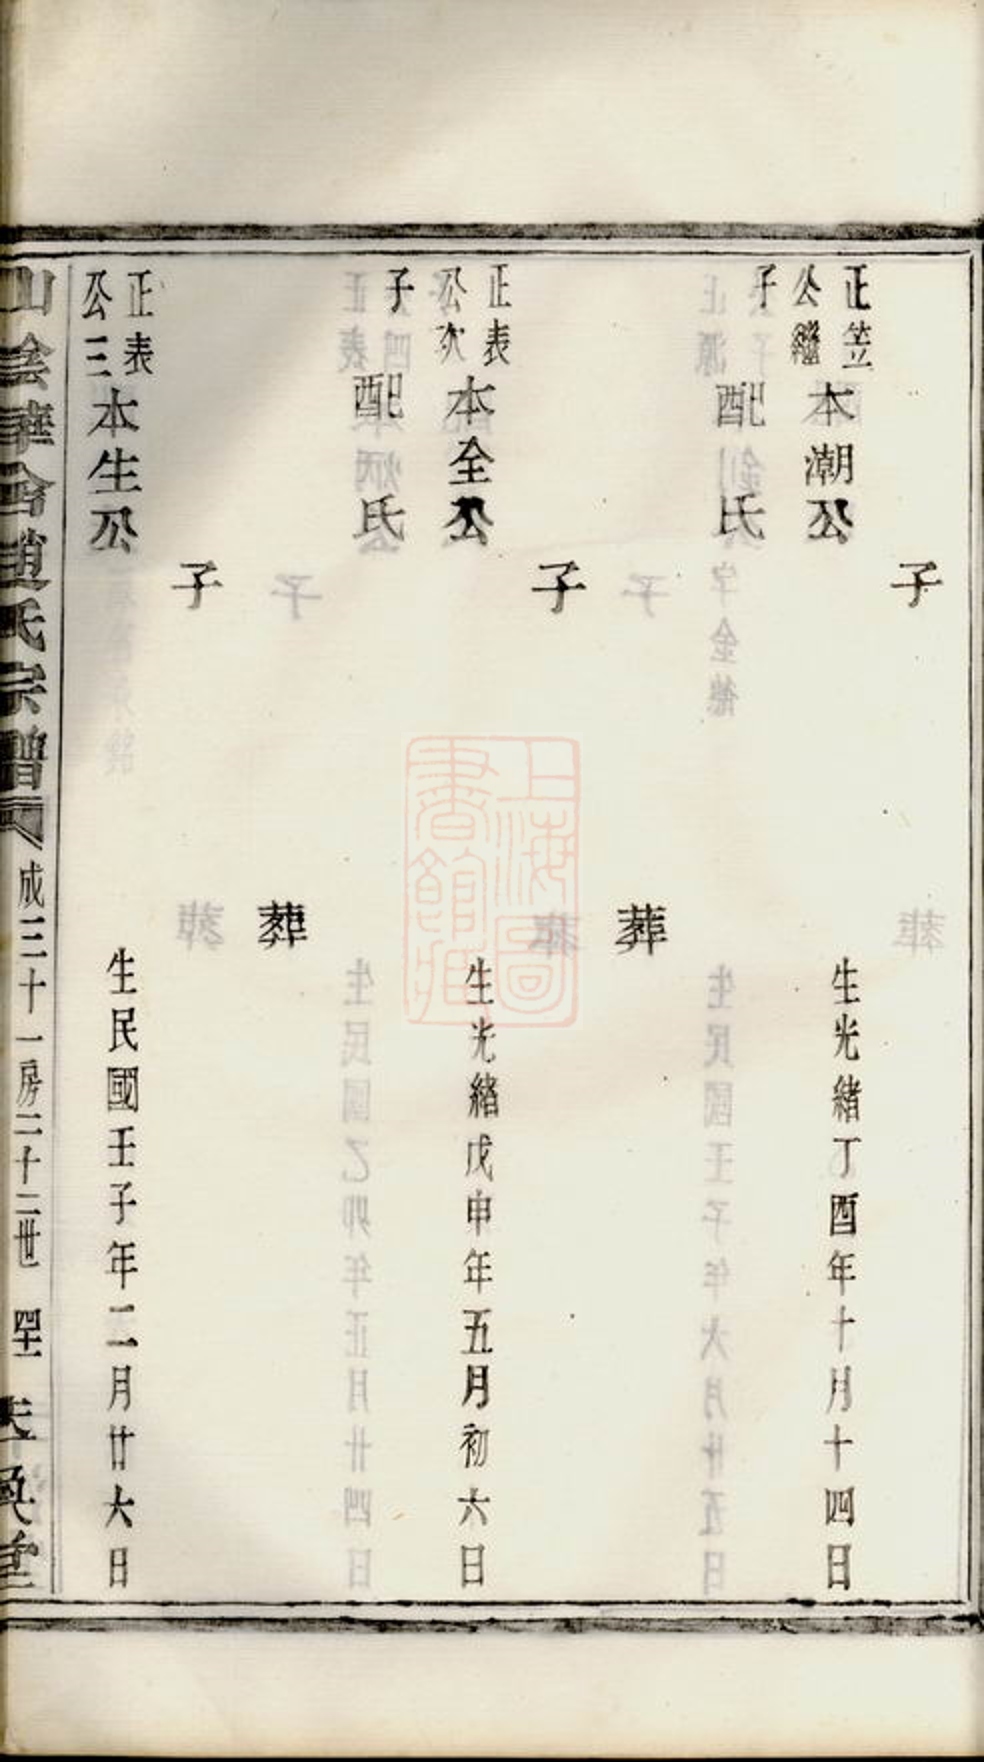 子
正笠
公繼
子
本潮公 生光緒丁酉年十月十四日
配 氏
葬
子
正表
公次
子
本全公 生光緒戊申年五月初六日
配 氏
葬
子
正表
公三
本生公 生民國壬子年二月廿六日
山陰華舍趙氏宗譜
成三十一房二十二世
上海圖
書館藏